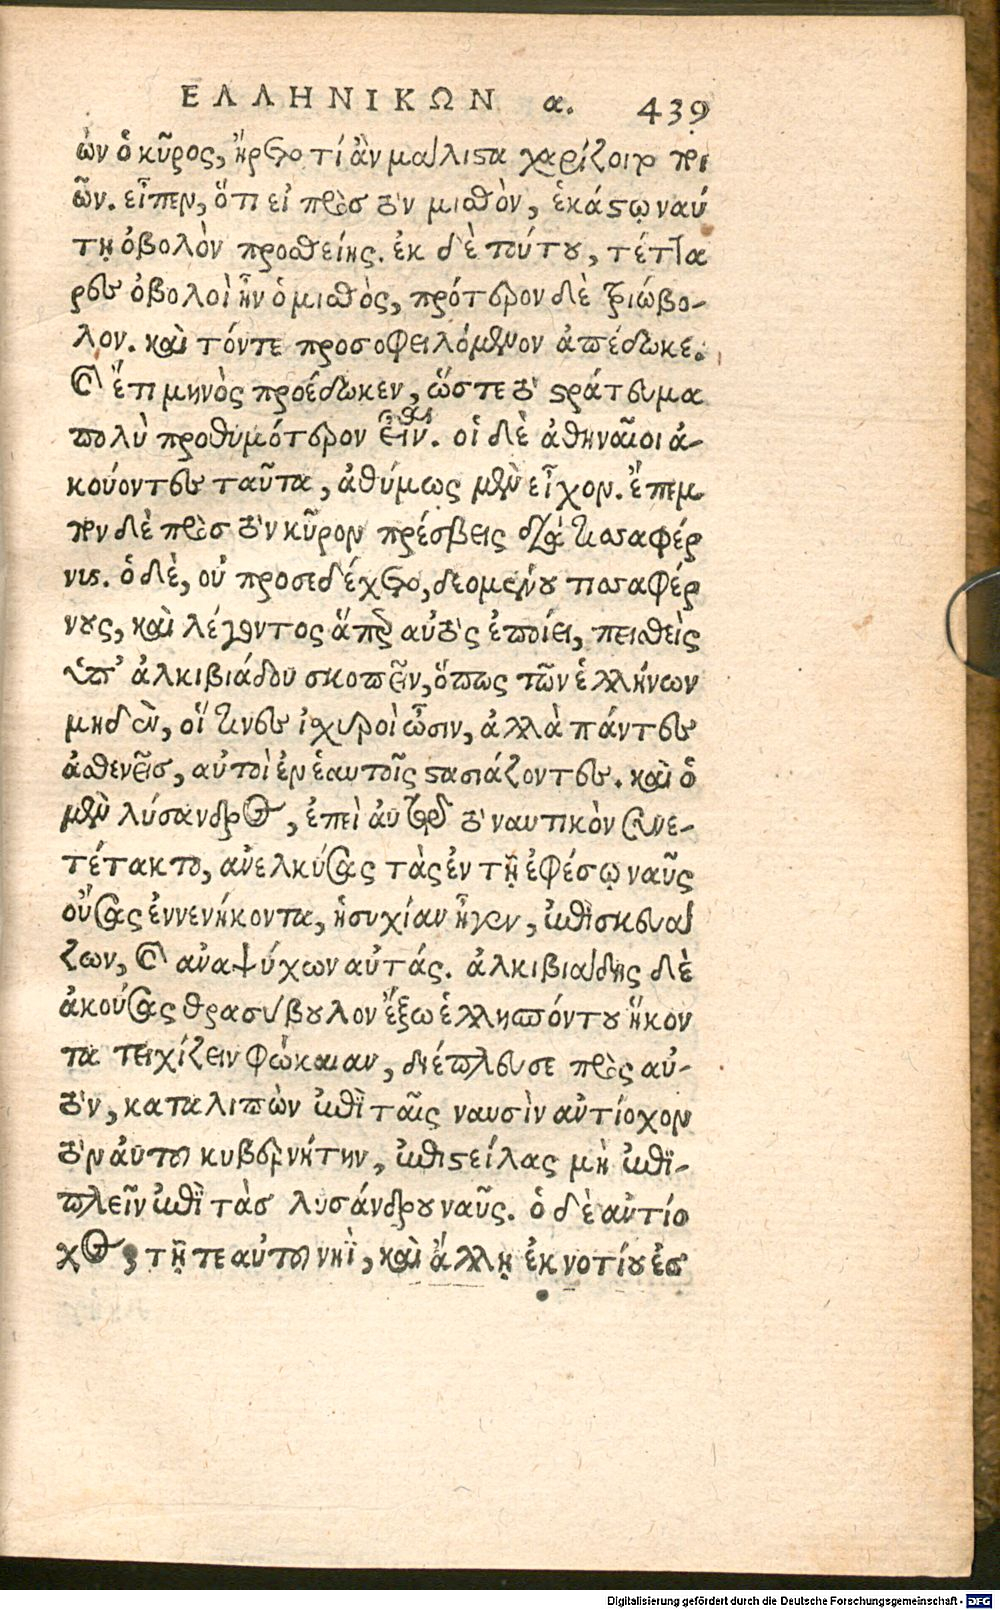 ΕΛΛΗΝΙΚΩΝ α. 439
ὼν ὁ κῦρος, ἤρετο τί ἂν μάλιστα χαρίζοιτο ποι
ῶν. εἶπεν, ὅτι εἰ πρὸς τὸν μισθὸν, ἑκάστῳ ναύ
τῃ ὀβολὸν προσθείης. ἐκ δὲ τούτου, τέτταρ
ρες ὀβολοὶ ἦν ὁ μισθὸς, πρότερον δὲ τριώβο-
λον. καὶ τόντε προσοφειλόμενον ἀπέδωκε.
καὶ ἔτι μηνὸς προέδωκεν, ὥστε τὸ στράτευμα
πολὺ προθυμότερον εἶναι. οἱ δὲ ἀθηναῖοι ἀ-
κούοντες ταῦτα, ἀθύμως μὲν εἶχον. ἔπεμ
πον δὲ πρὸς τὸν κῦρον πρέσβεις διὰ τισσαφέρ
νης. ὁ δὲ, οὐ προσεδέχετο, δεομένου τισσαφέρ
νους, καὶ λέγοντος ἅπερ αὐτὸς ἐποίει, πεισθεὶς
ὑπ’ ἀλκιβιάδου σκοπεῖν, ὅπως τῶν ἑλλήνων
μηδὲν, οἵ τινες ἰσχυροὶ ὦσιν, ἀλλὰ πάντες
ἀσθενεῖς, αὐτοὶ ἐν ἑαυτοῖς στασιάζοντες. καὶ ὁ
μὲν λύσανδρος, ἐπεὶ αὐτῷ τὸ ναυτικὸν συνε-
τέτακτο, ἀνελκύσας τὰς ἐν τῇ ἐφέσῳ ναῦς
οὔσας ἐννενήκοντα, ἡσυχίαν ἦγεν, ἐπισκευά
ζων, καὶ ἀναψύχων αὐτάς. ἀλκιβιάδης δὲ
ἀκούσας θρασύβουλον ἔξω ἑλλησπόντου ἥκον
τα τειχίζειν φώκαιαν, διέπλευσε πρὸς αὐ-
τὸν, καταλιπὼν ἐπὶ ταῖς ναυσὶν ἀντίοχον
τὸν αὐτοῦ κυβερνήτην, ἐπιστείλας μὴ ἐπι-
πλεῖν ἐπὶ τὰς λυσάνδρου ναῦς. ὁ δὲ ἀντίο
χος, τῇ τε αὐτοῦ νηῒ, καὶ ἄλλῃ ἐκ νοτίου ἐς
Digitalisierung gefördert durch die Deutsche Forschungsgemeinschaft - DFG